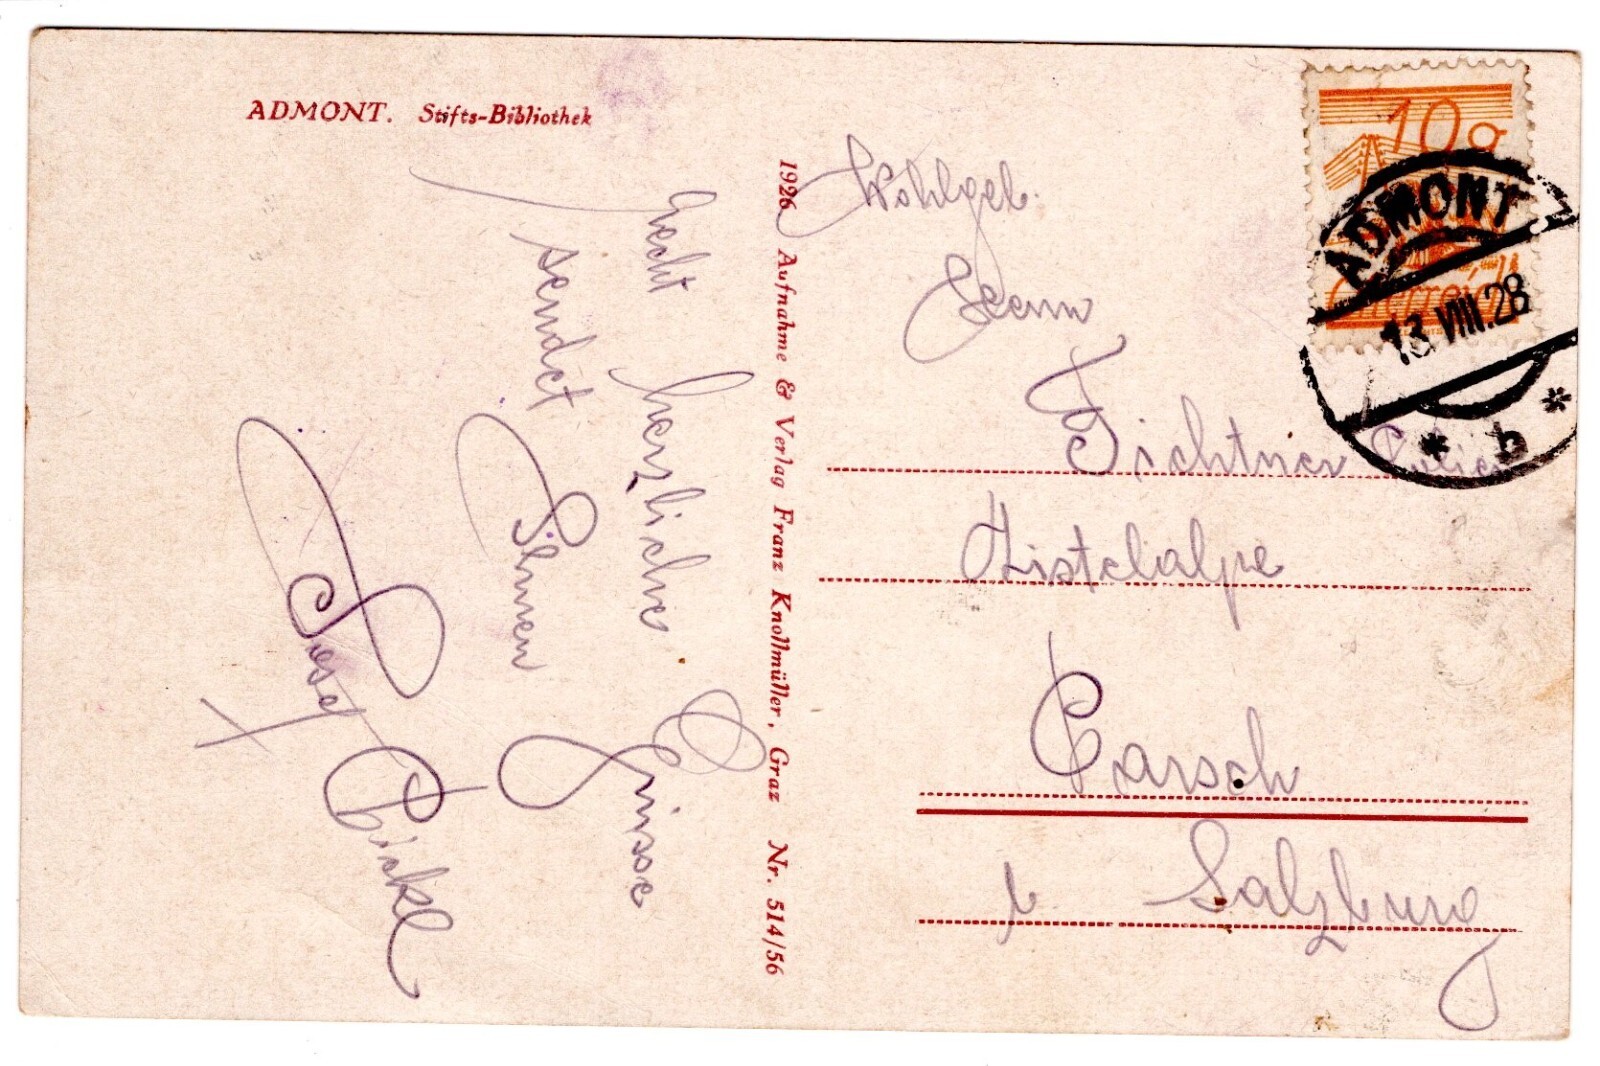 ADMONT. Stifts-Bibliothek
Recht herzliche Grüsse
sendet Ihnen
Josef Bickl
1926 Aufnahme & Verlag Franz Knollmüller, Graz Nr. 514/56
10g
Österreich
ADMONT
13.VIII.28
* b *
Wohlgeb.
Herrn
Fichtner
Zistelalpe
Parsch
b Salzburg